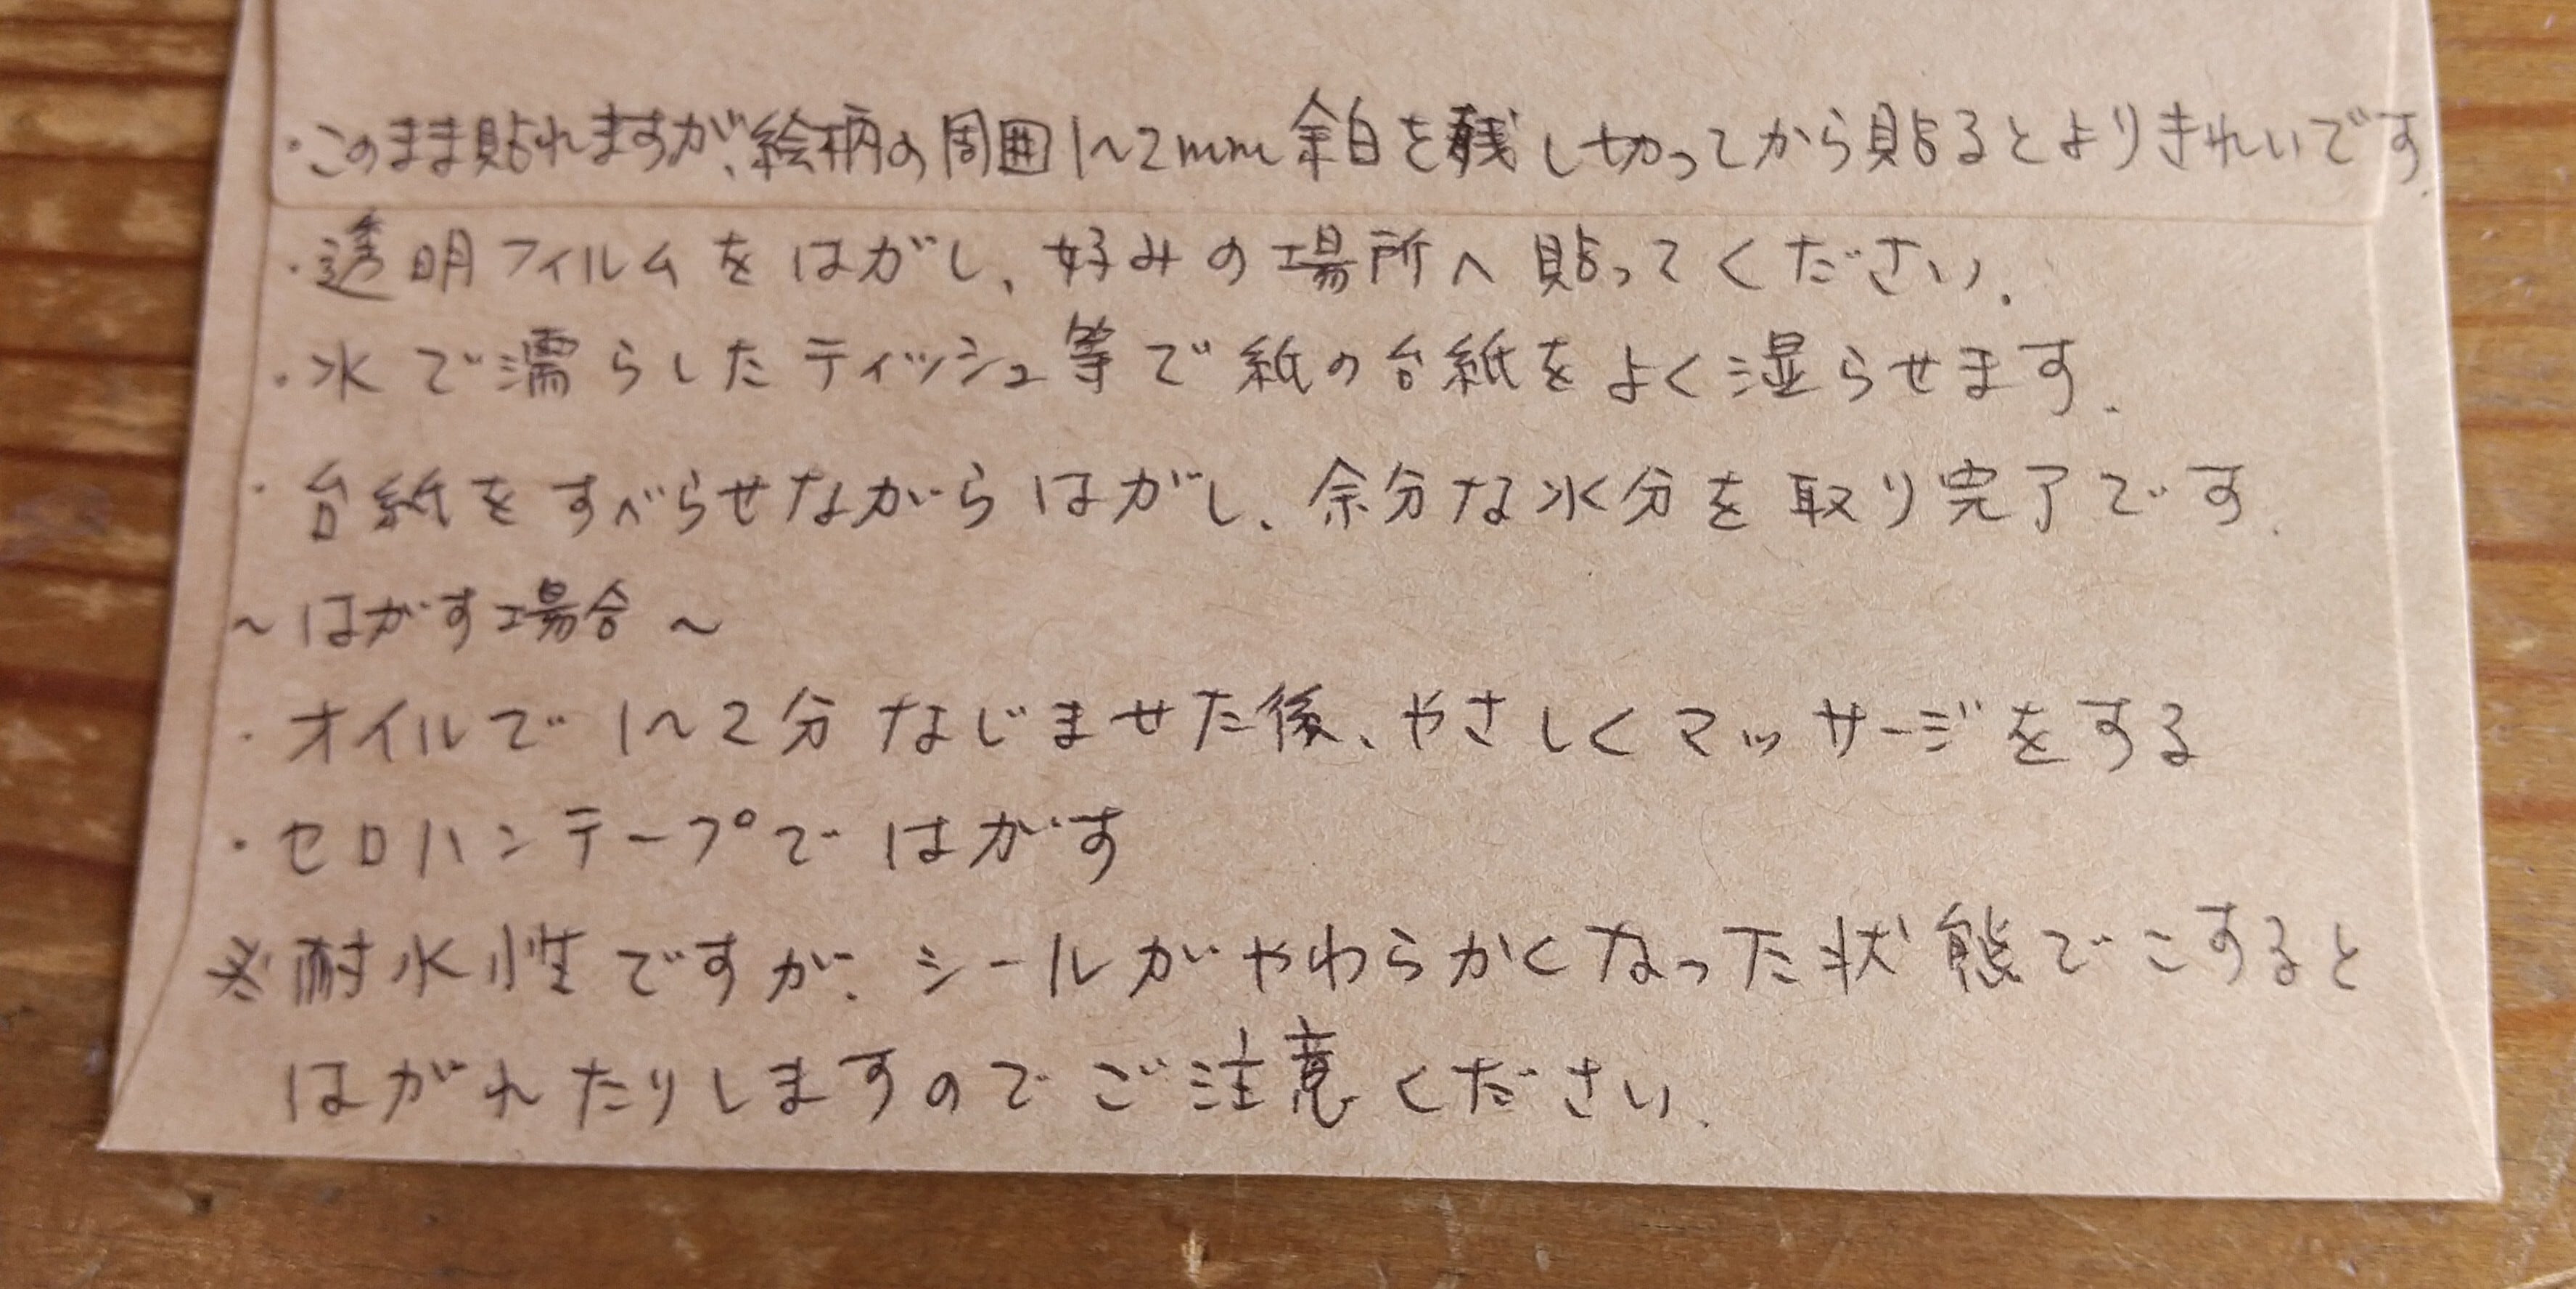 ・このまま貼れますが、絵柄の周囲1~2mm余白を残し切ってから貼るとよりきれいです.
・透明フィルムをはがし、好みの場所へ貼ってください.
・水で濡らしたティッシュ等で紙の台紙をよく湿らせます.
・台紙をすべらせながらはがし、余分な水分を取り完了です.
~はがす場合~
・オイルで1~2分なじませた後、やさしくマッサージをする
・セロハンテープではがす
※耐水性ですが、シールがやわらかくなった状態でこすると
はがれたりしますのでご注意ください.